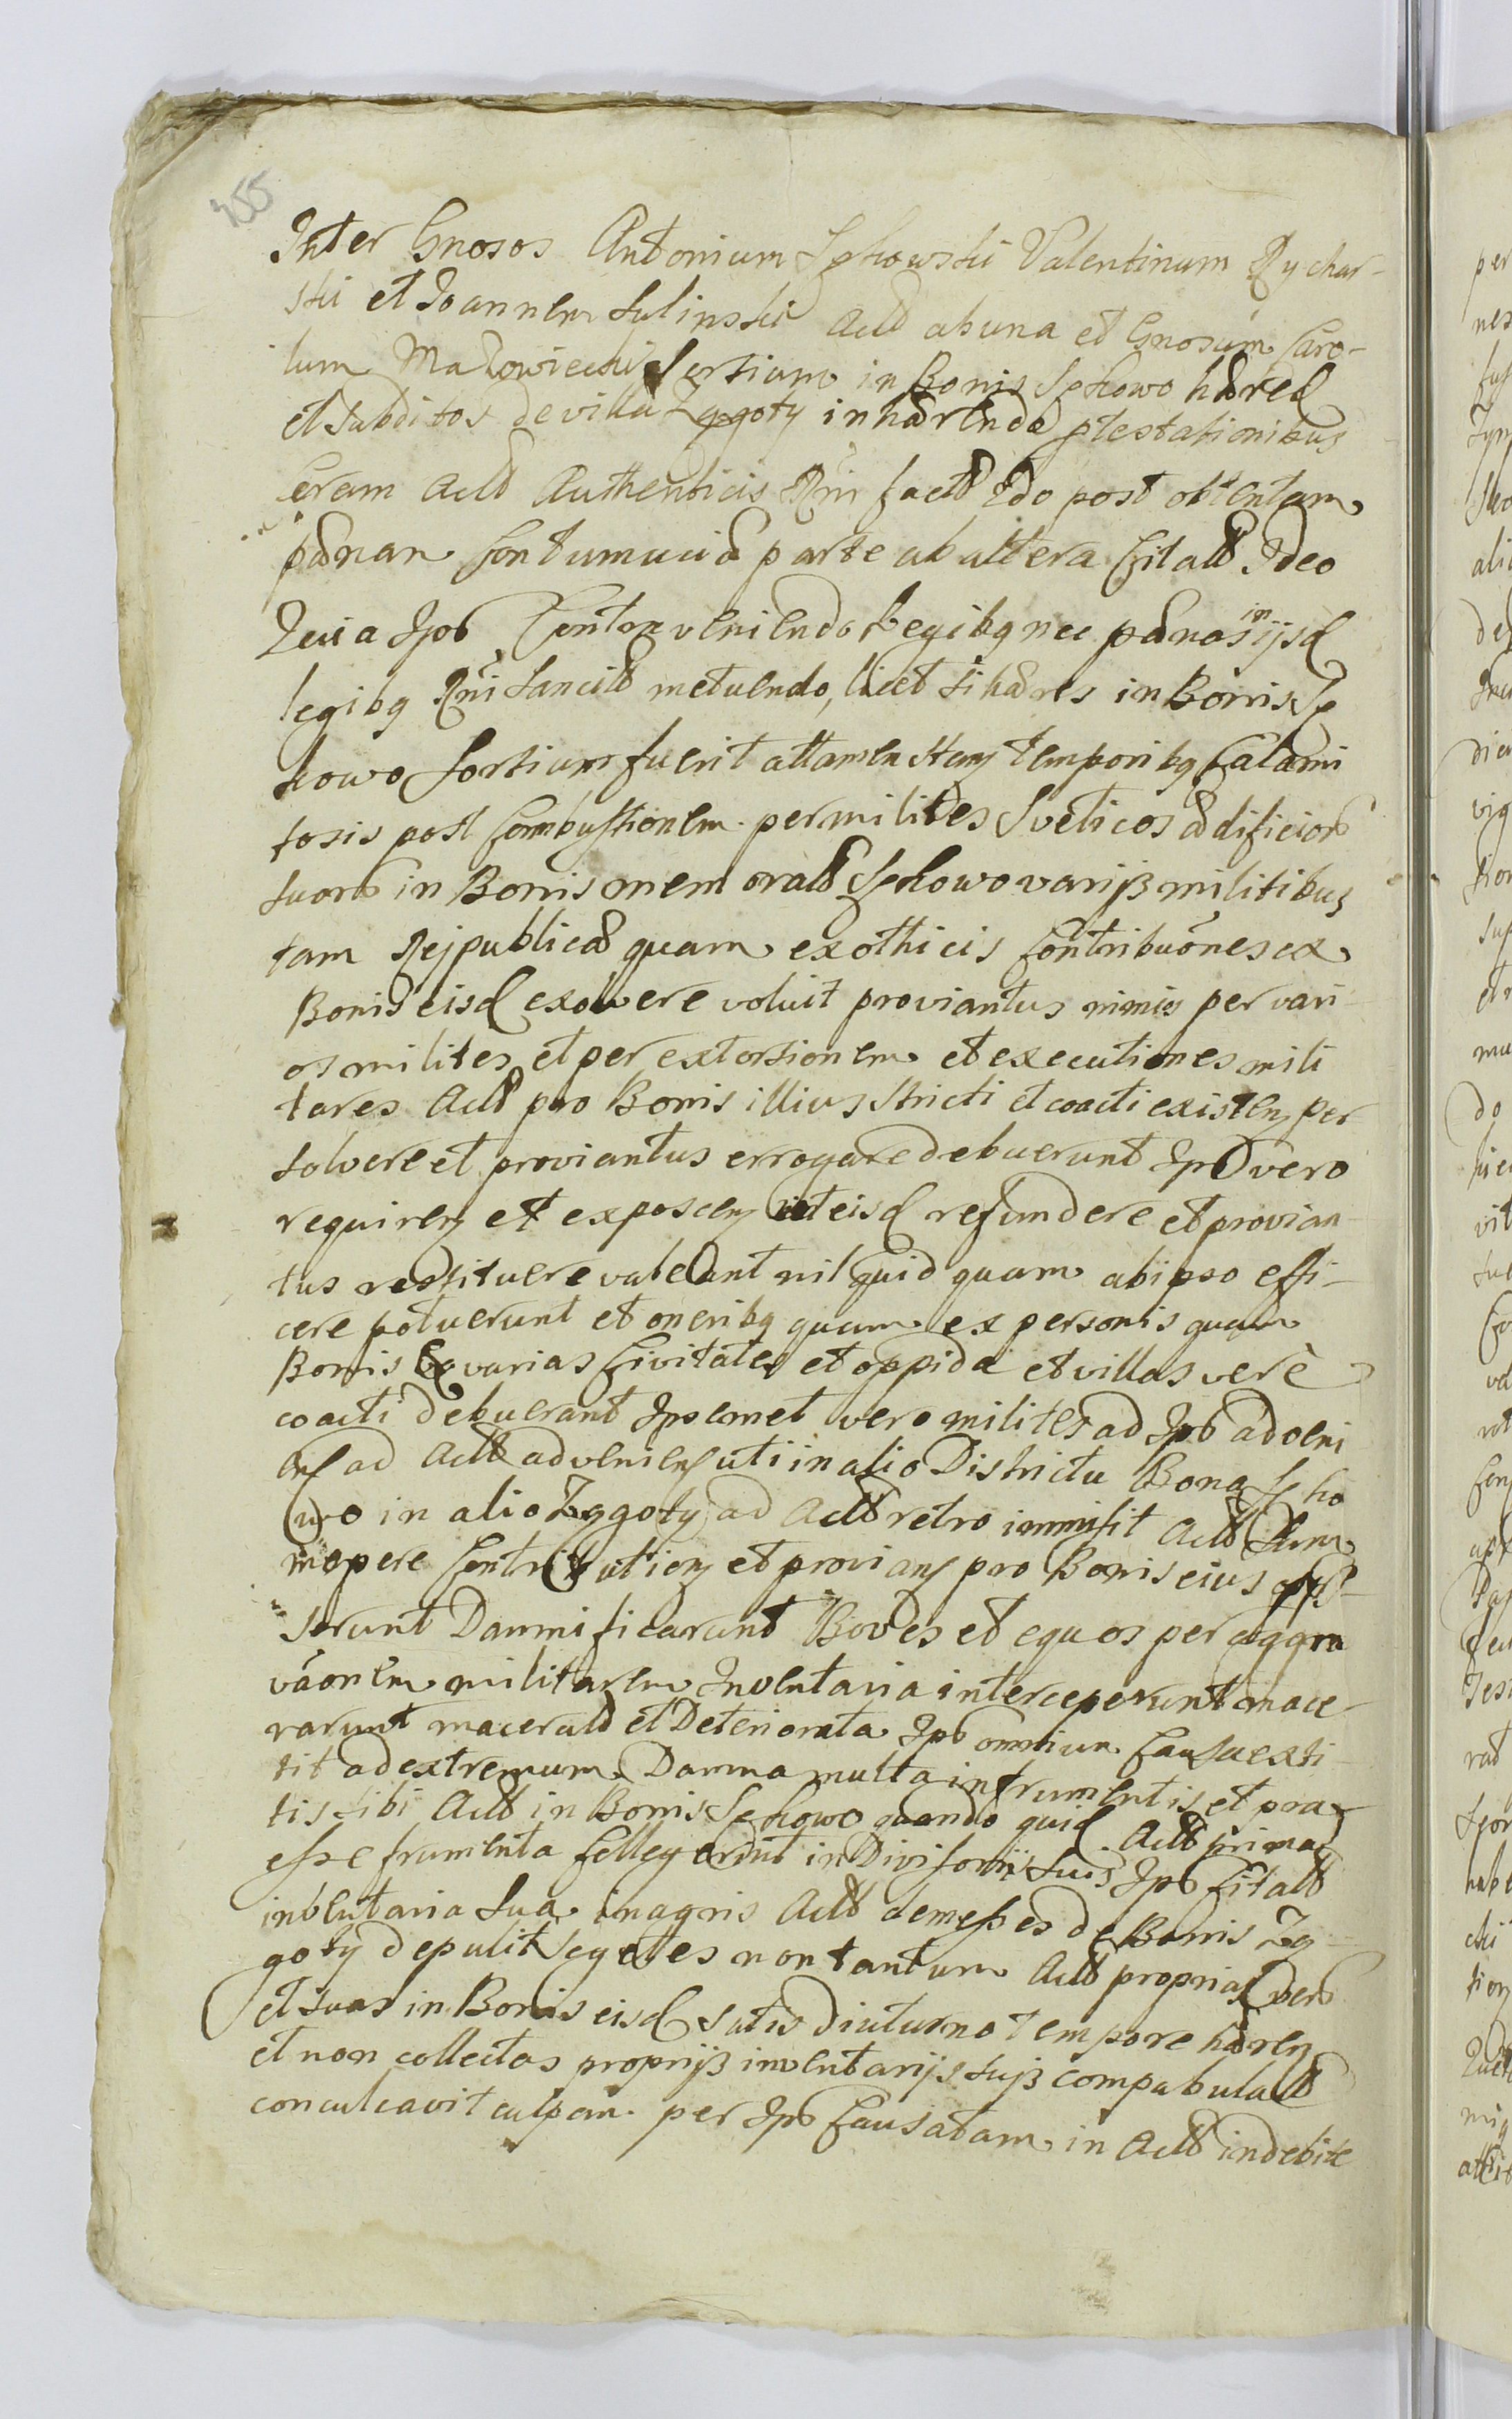 355
Inter Gnosos Antonium Sękowski Valentinum Rychar-
ski et Joannem Sulinski Actt ab una et Gnosum Caro-
lum Mazowiecki Sortium in Bonis Sękowo hæred
et Subditos de villa Zygoty inhærendo ptestationibus
Coram Actt Authenticis Rni factt Ido post obtentam
pænam Contumaciæ parte ab altera Citatt Ideo
Quia Ipse Contraveniendo Legibq nec pænas in ijsd
legibq Rni Sancitt metuendo, licet si hæres in Bonis Sę
kowo Sortium fuerit attamen Hanz temporibq Calami
tosis post Combustionem per milites Sveticos ædificior
suor in Bonis memoratt Sękowo varijs militibus
tam Reipublicæ quam exothicis Contribuones ex
Bonis eisd exolvere voluit proviantus nimios per vari
os milites et per extortionem et executiones mili
tares Actt pro Bonis illius stricti et coacti existen per
solvere et proviantus errogare debuerunt Ipse vero
requiren et exposcen ut eisd refundere et provian
tus restituere valeant nil quid quam ab ipso effi-
cere potuerunt et oneribq quam ex personis quam
Bonis varias Civitates et oppida et villas vere
coacti debuerant Ipsemet vero milites ad Ipse adveni
en ad Actt advenien uti in alio Districtu Bona Sęko
wo in alio Zygoty ad Actt retro immisit Actt
mopere Contribution et provian pro Bonis eius
serunt Damnificarunt Boves et equos per aggra
vaonem militarem Inventaria interceperunt mace
rarunt maceratt et Deteriorata Ipse omnium Causa exti
tit ad extremum Damna multa in frumentis et pra
tis sibi Actt in Bonis Sękowo quando quid Actt prima
esse frumenta sellegerint in Divisorijs Suis Ipse Citatt
inventaria Sua in agris Actt demesses de Bonis Zy
goty depulit segetes non tantum Actt proprias ver
et suas in Bonis eisd satis diuturno tempore hæren
et non collectas proprijs inventarijs suis compabulatt
conculcavit culpam per Ipse Causatam in Actt indebite